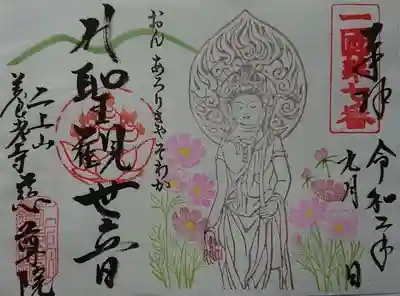 奉拝
令和二年
九月　日
おん あろりきやそわか
聖觀世音
二上山
養老寺
慈尊院